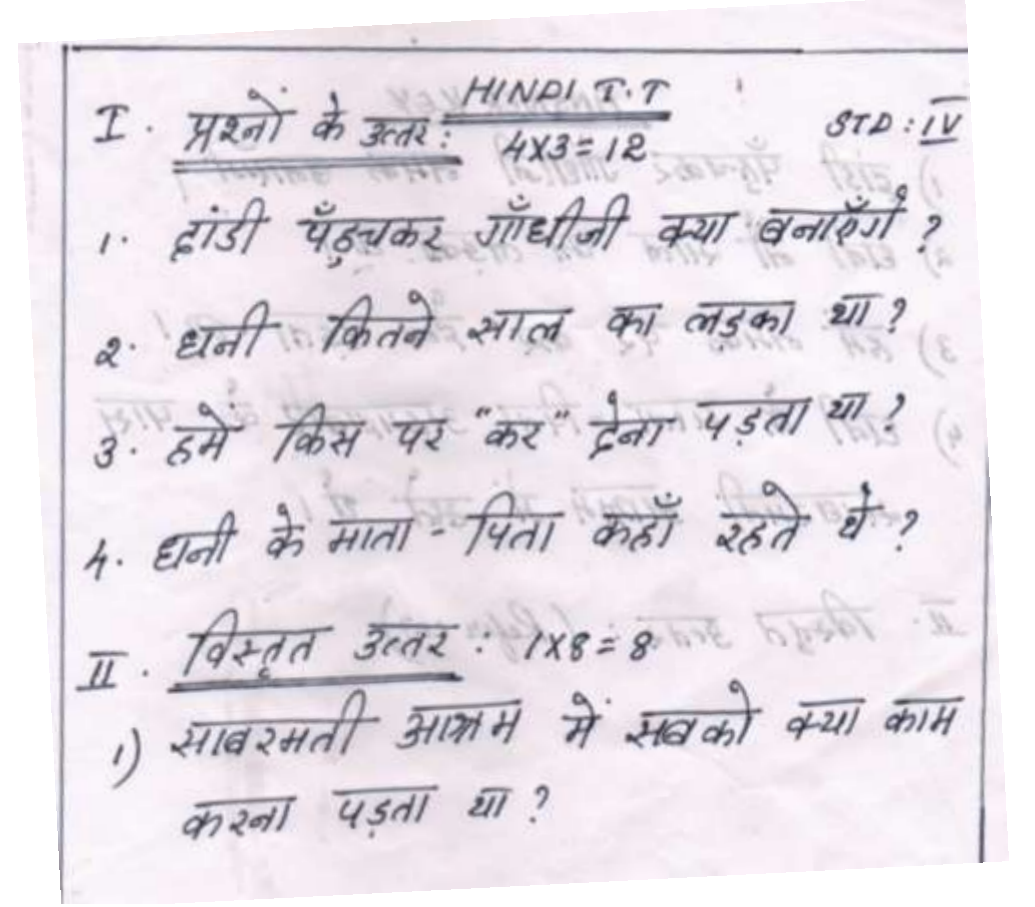 HINDI T.T
I. प्रश्नों के उत्तर: 4x3=12 STD: IV
1. दांडी पहुँचकर गाँधीजी क्या बनाएँगे?
2. धनी कितने साल का लड़का था?
3. हमें किस पर "कर" देना पड़ता था?
4. धनी के माता-पिता कहाँ रहते थे?
II. विस्तृत उत्तर: 1x8=8
1) साबरमती आश्रम में सबको क्या काम
करना पड़ता था?